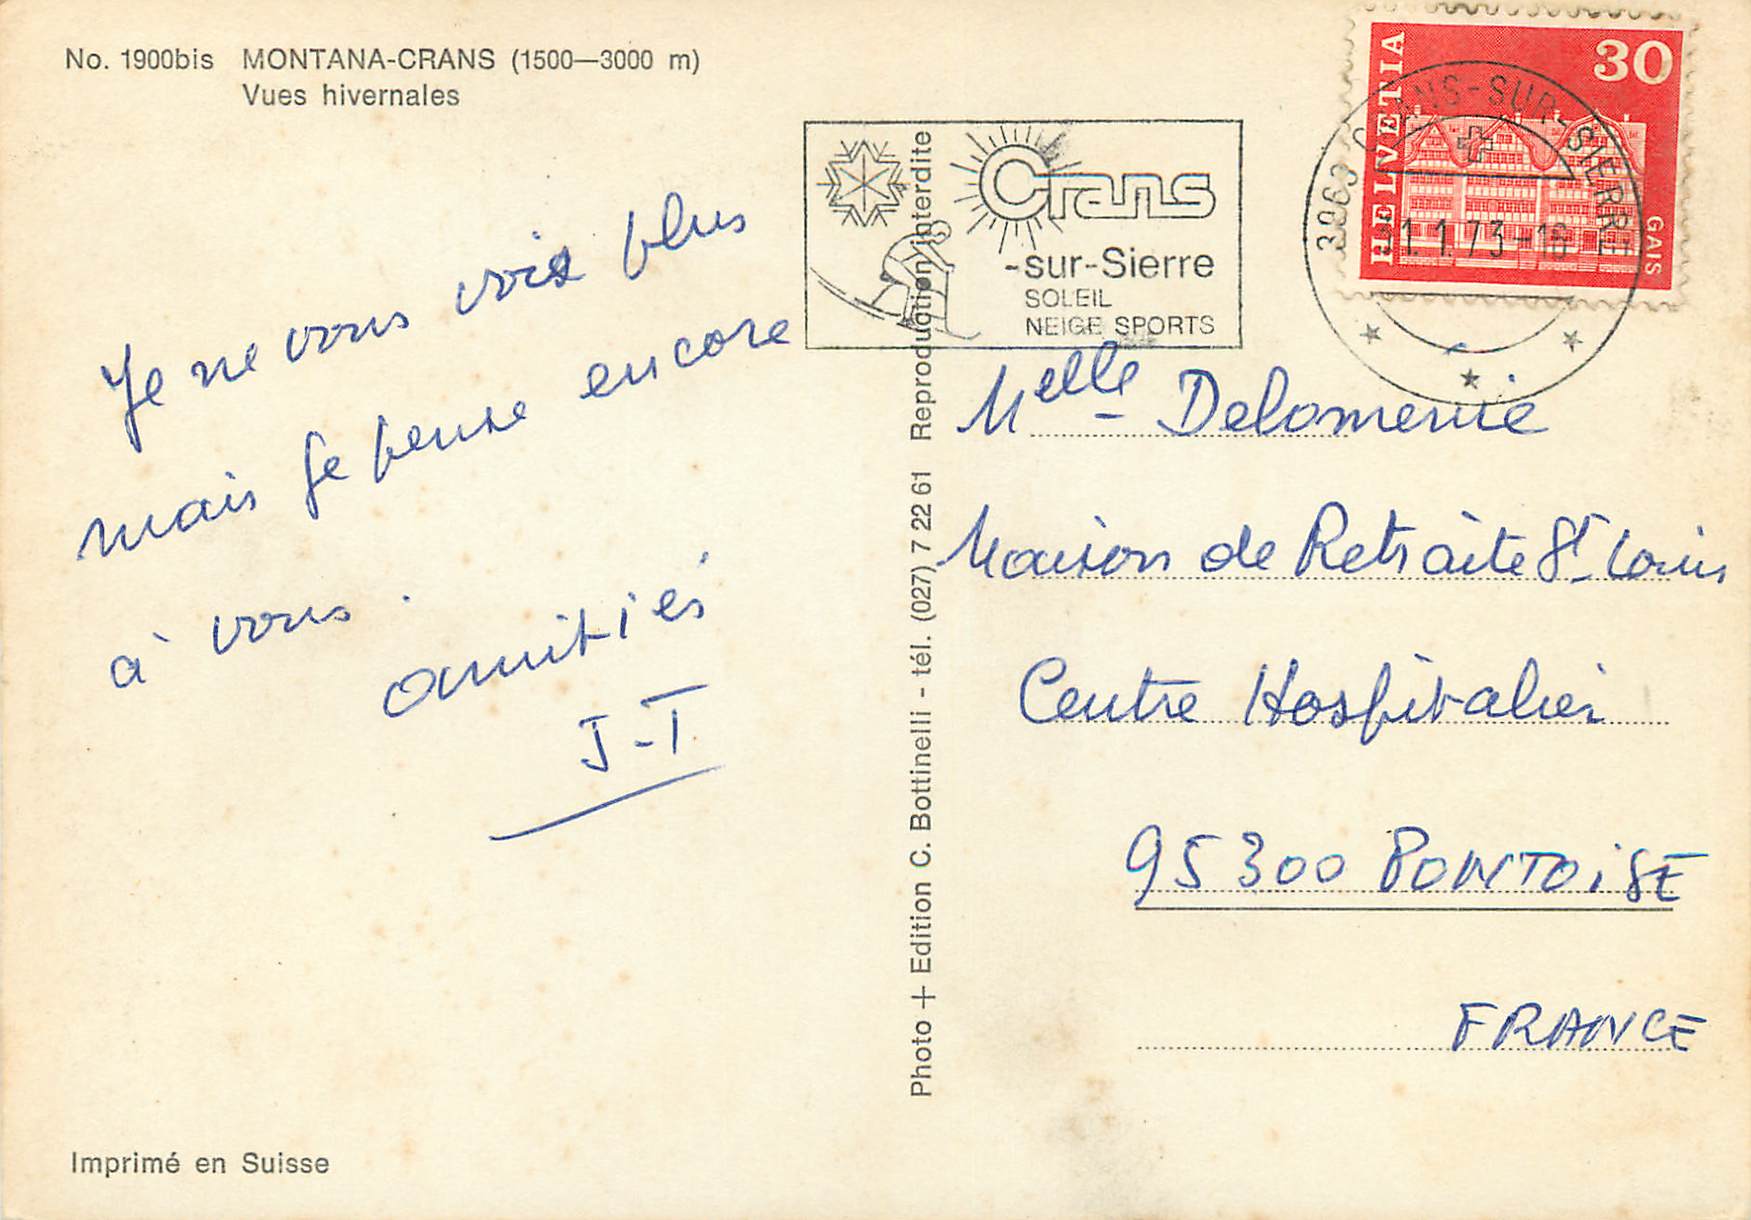 No. 1900bis MONTANA-CRANS (1500—3000 m)
Vues hivernales
Je ne vous vois plus
mais je pense encore
à vous.
amitiés
J-T
Imprimé en Suisse
Photo + Edition C. Bottinelli - tél. (027) 7 22 61 Reproduction interdite
Crans
-sur-Sierre
SOLEIL
NEIGE SPORTS
HELVETIA
30
GAIS
3963 CRANS-SUR-SIERRE
1.1.73-16
Melle Delomenie
Maison de Retraite St Louis
Centre Hospitalier
95300 PONTOISE
FRANCE